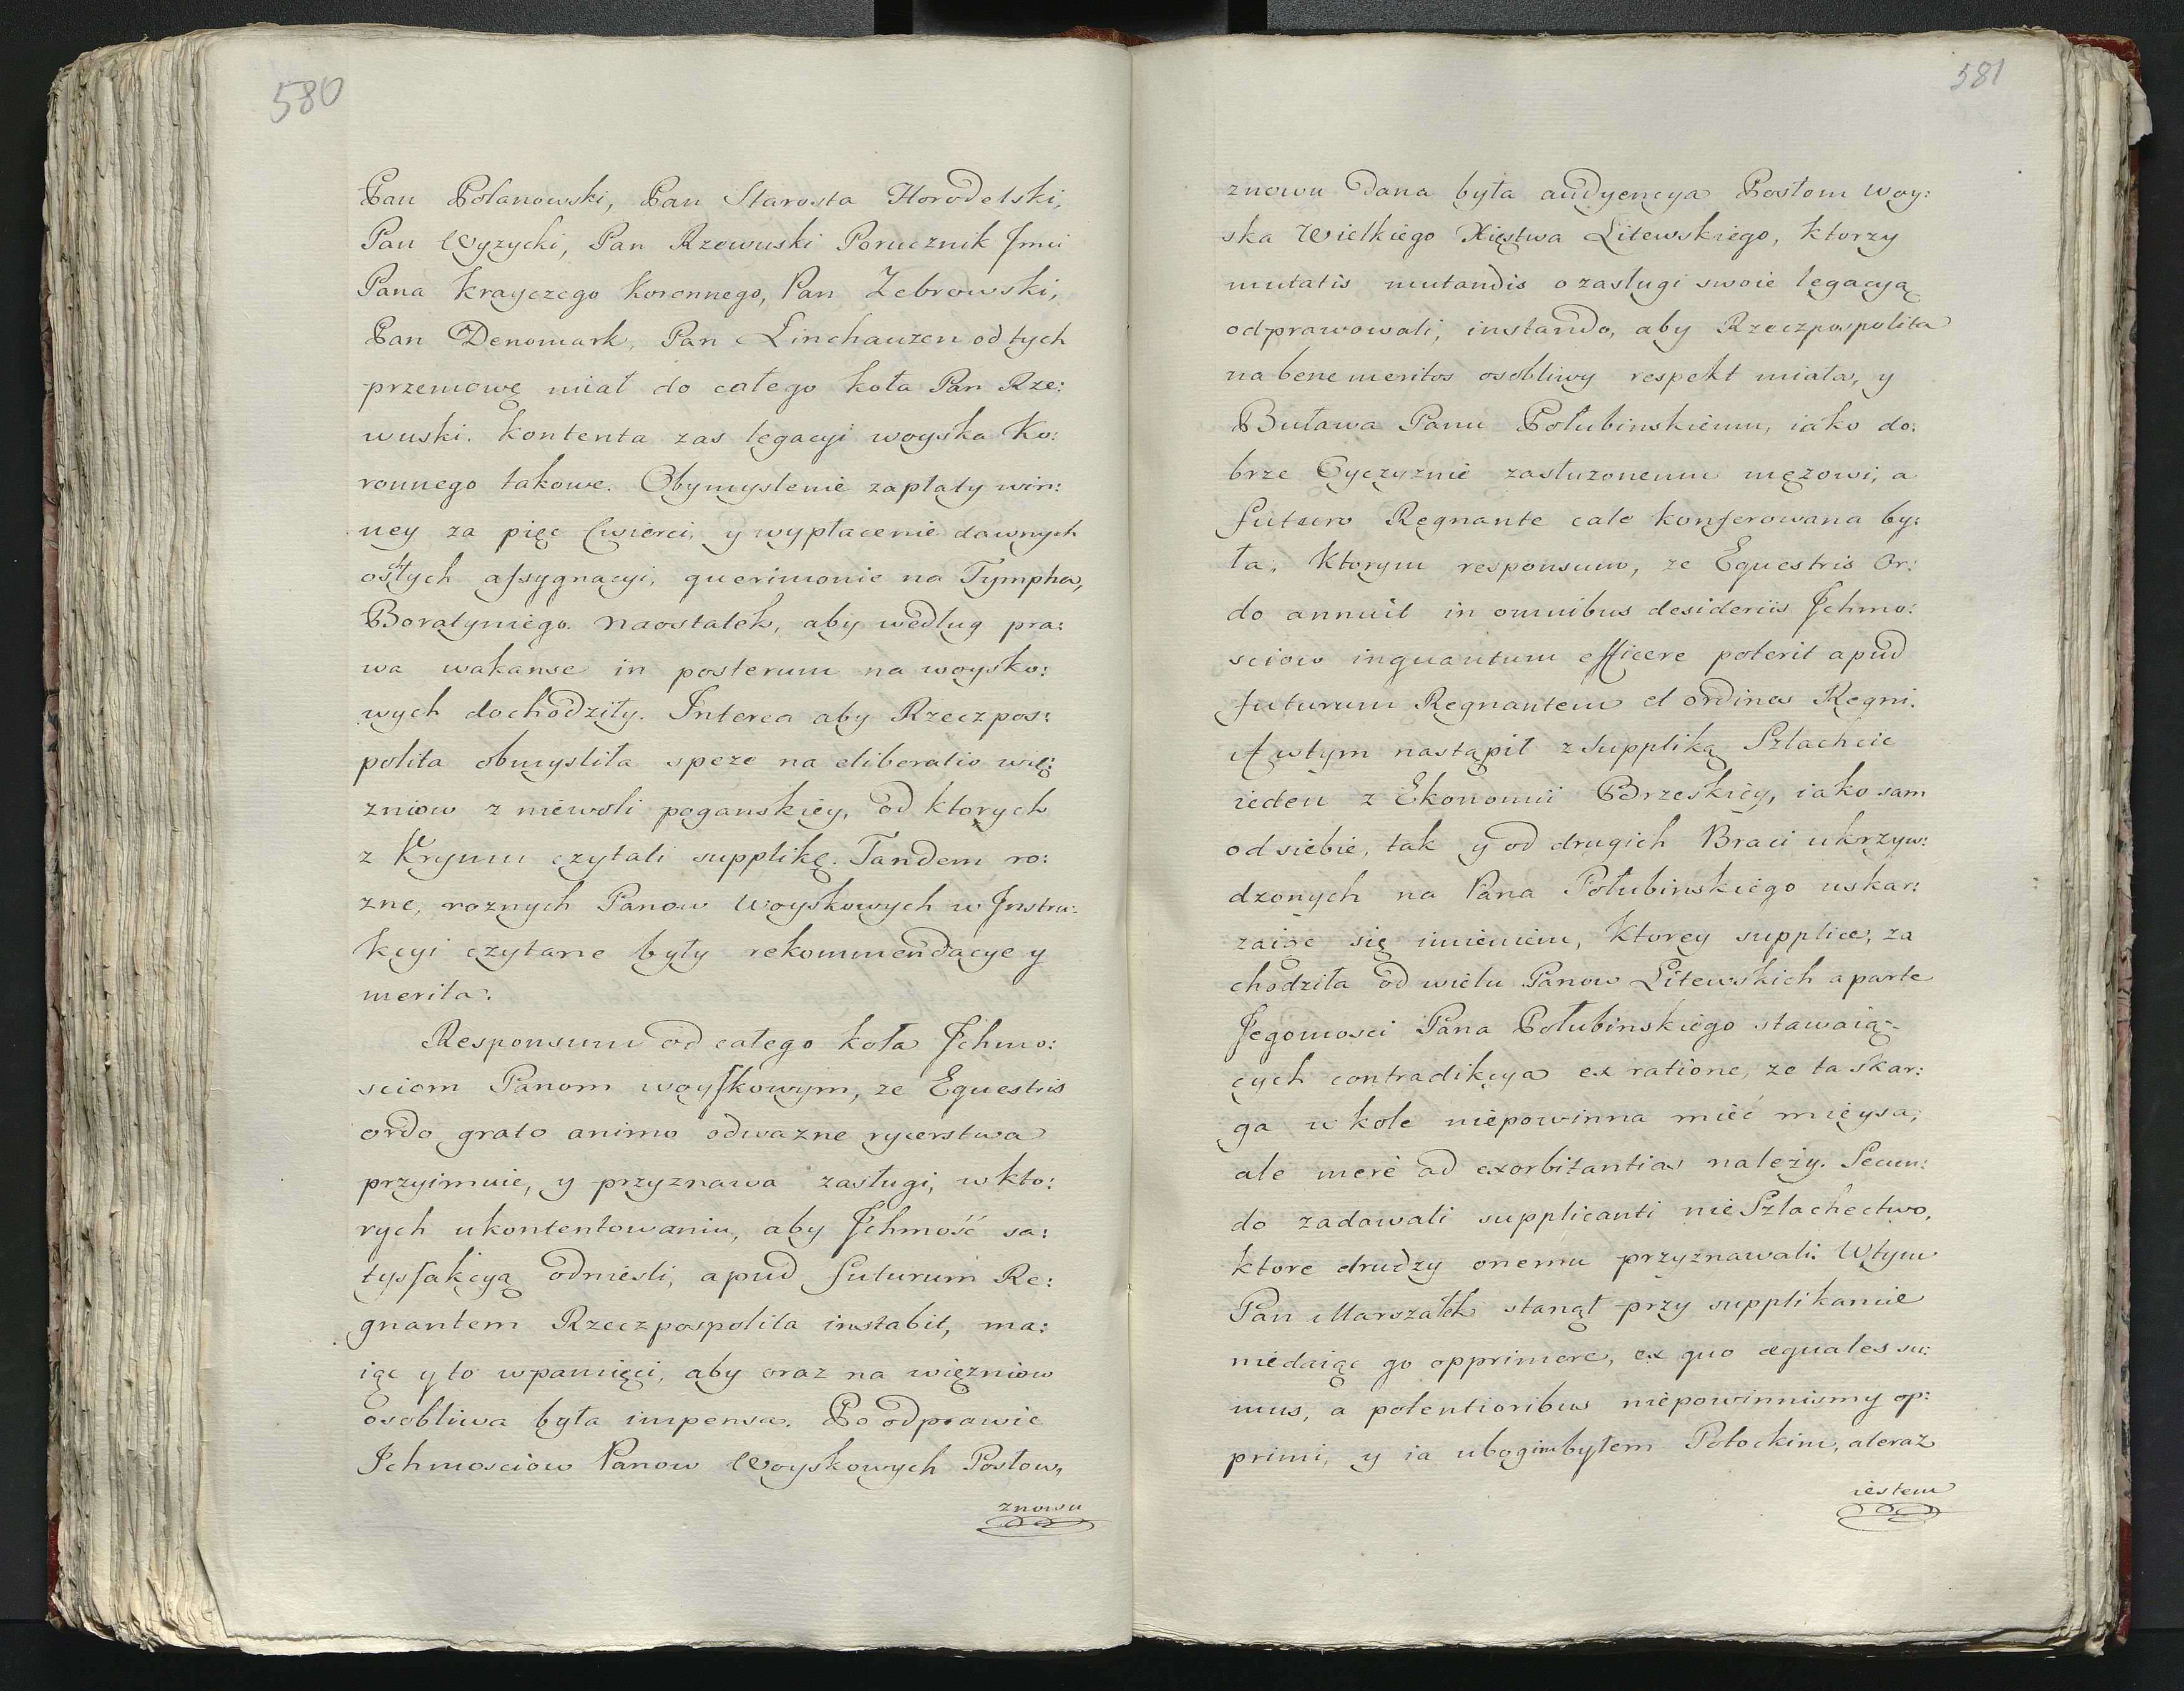 580
Pan Polanowski, Pan Starosta Horodelski,
Pan Wyzycki, Pan Rzewuski Porucznik Jmci
Pana Krayczego Korennego, Pan Zebrowski,
Pan Denomark, Pan Linchauzen od tych
przemowę miał do całego koła Pan Rze:
wuski. Kontenta zas legacyi woyska Ko:
ronnego takowe. Obymyslenie zapłaty win:
ney za pięc cwierci, y wypłacenie dawnych
osłych assygnacyi, querimonie na Tympha,
Boratyniego. Naostatek, aby według pra:
wa wakanse in posterum na woysko:
wych dochodziły. Interea aby Rzeczpos:
polita obmysliła speze na eliberatio wię:
zniow z niewoli poganskiey, od ktorych
z Krymu czytali supplikę. Tandem ro:
zne, roznych Panow Woyskowych w Instru:
kcyi czytane były rekommendacye y
merita.
Responsum od całego koła Jchmo:
sciom Panom woyskowym, ze Equestris
ordo grato animo odwazne rycerstwa
przyimuie, y przyznawa zasługi, w kto:
rych ukontentowaniu, aby Jchmość sa:
tysfakcyą odniesli, apud futurum Re:
gnantem Rzeczpospolita instabit, ma:
iąc y to wpamięci, aby oraz na więzniow
osobliwa była impensa. Po odprawie
Jchmosciow Panow Woyskowych Posłow,
znowu
581
znowu dana była audyencya Posłom woy:
ska Wielkiego Xięstwa Litewskiego, ktorzy
mutatis mutandis o zasługi swoie legacyą
odprawowali, instando, aby Rzeczpospolita
na bene meritos osobliwy respekt miała, y
Buława Panu Połubinskiemu, iako do:
brze Oyczyznie zasłuzonemu męzowi, a
futuro Regnante cale konferowana by:
ła, Ktorym responsum, ze Equestris Or:
do annuit in omnibus desideriis Jchmo:
sciow inquantum efficere poterit apud
futurum Regnantem et ordines Regni.
A wtym nastąpił z suppliką Szlachcic
ieden z Ekonomii Brzeskiey, iako sam
od siebie, tak y od drugich Braci ukrzyw:
dzonych na Pana Połubinskiego uskar:
zaiąc się imieniem, Ktorey supplice, za
chodziła od wielu Panow Litewskich a parte
Jegomosci Pana Połubinskiego stawaią:
cych contradikcya ex ratione, ze ta skar:
ga w kole niepowinna mieć mieysa,
ale merè ad exorbitantias należy. Secun:
do zadawali supplicanti nie Szlachectwo,
ktore drudzy onemu przyznawali. Wtym
Pan Marszałek stanął przy supplikancie
niedaiąc go opprimere, ex quo æquales su:
mus, a potentioribus niepowinnismy op:
primi, y ia ubogim byłem Potockim, a teraz
iestem